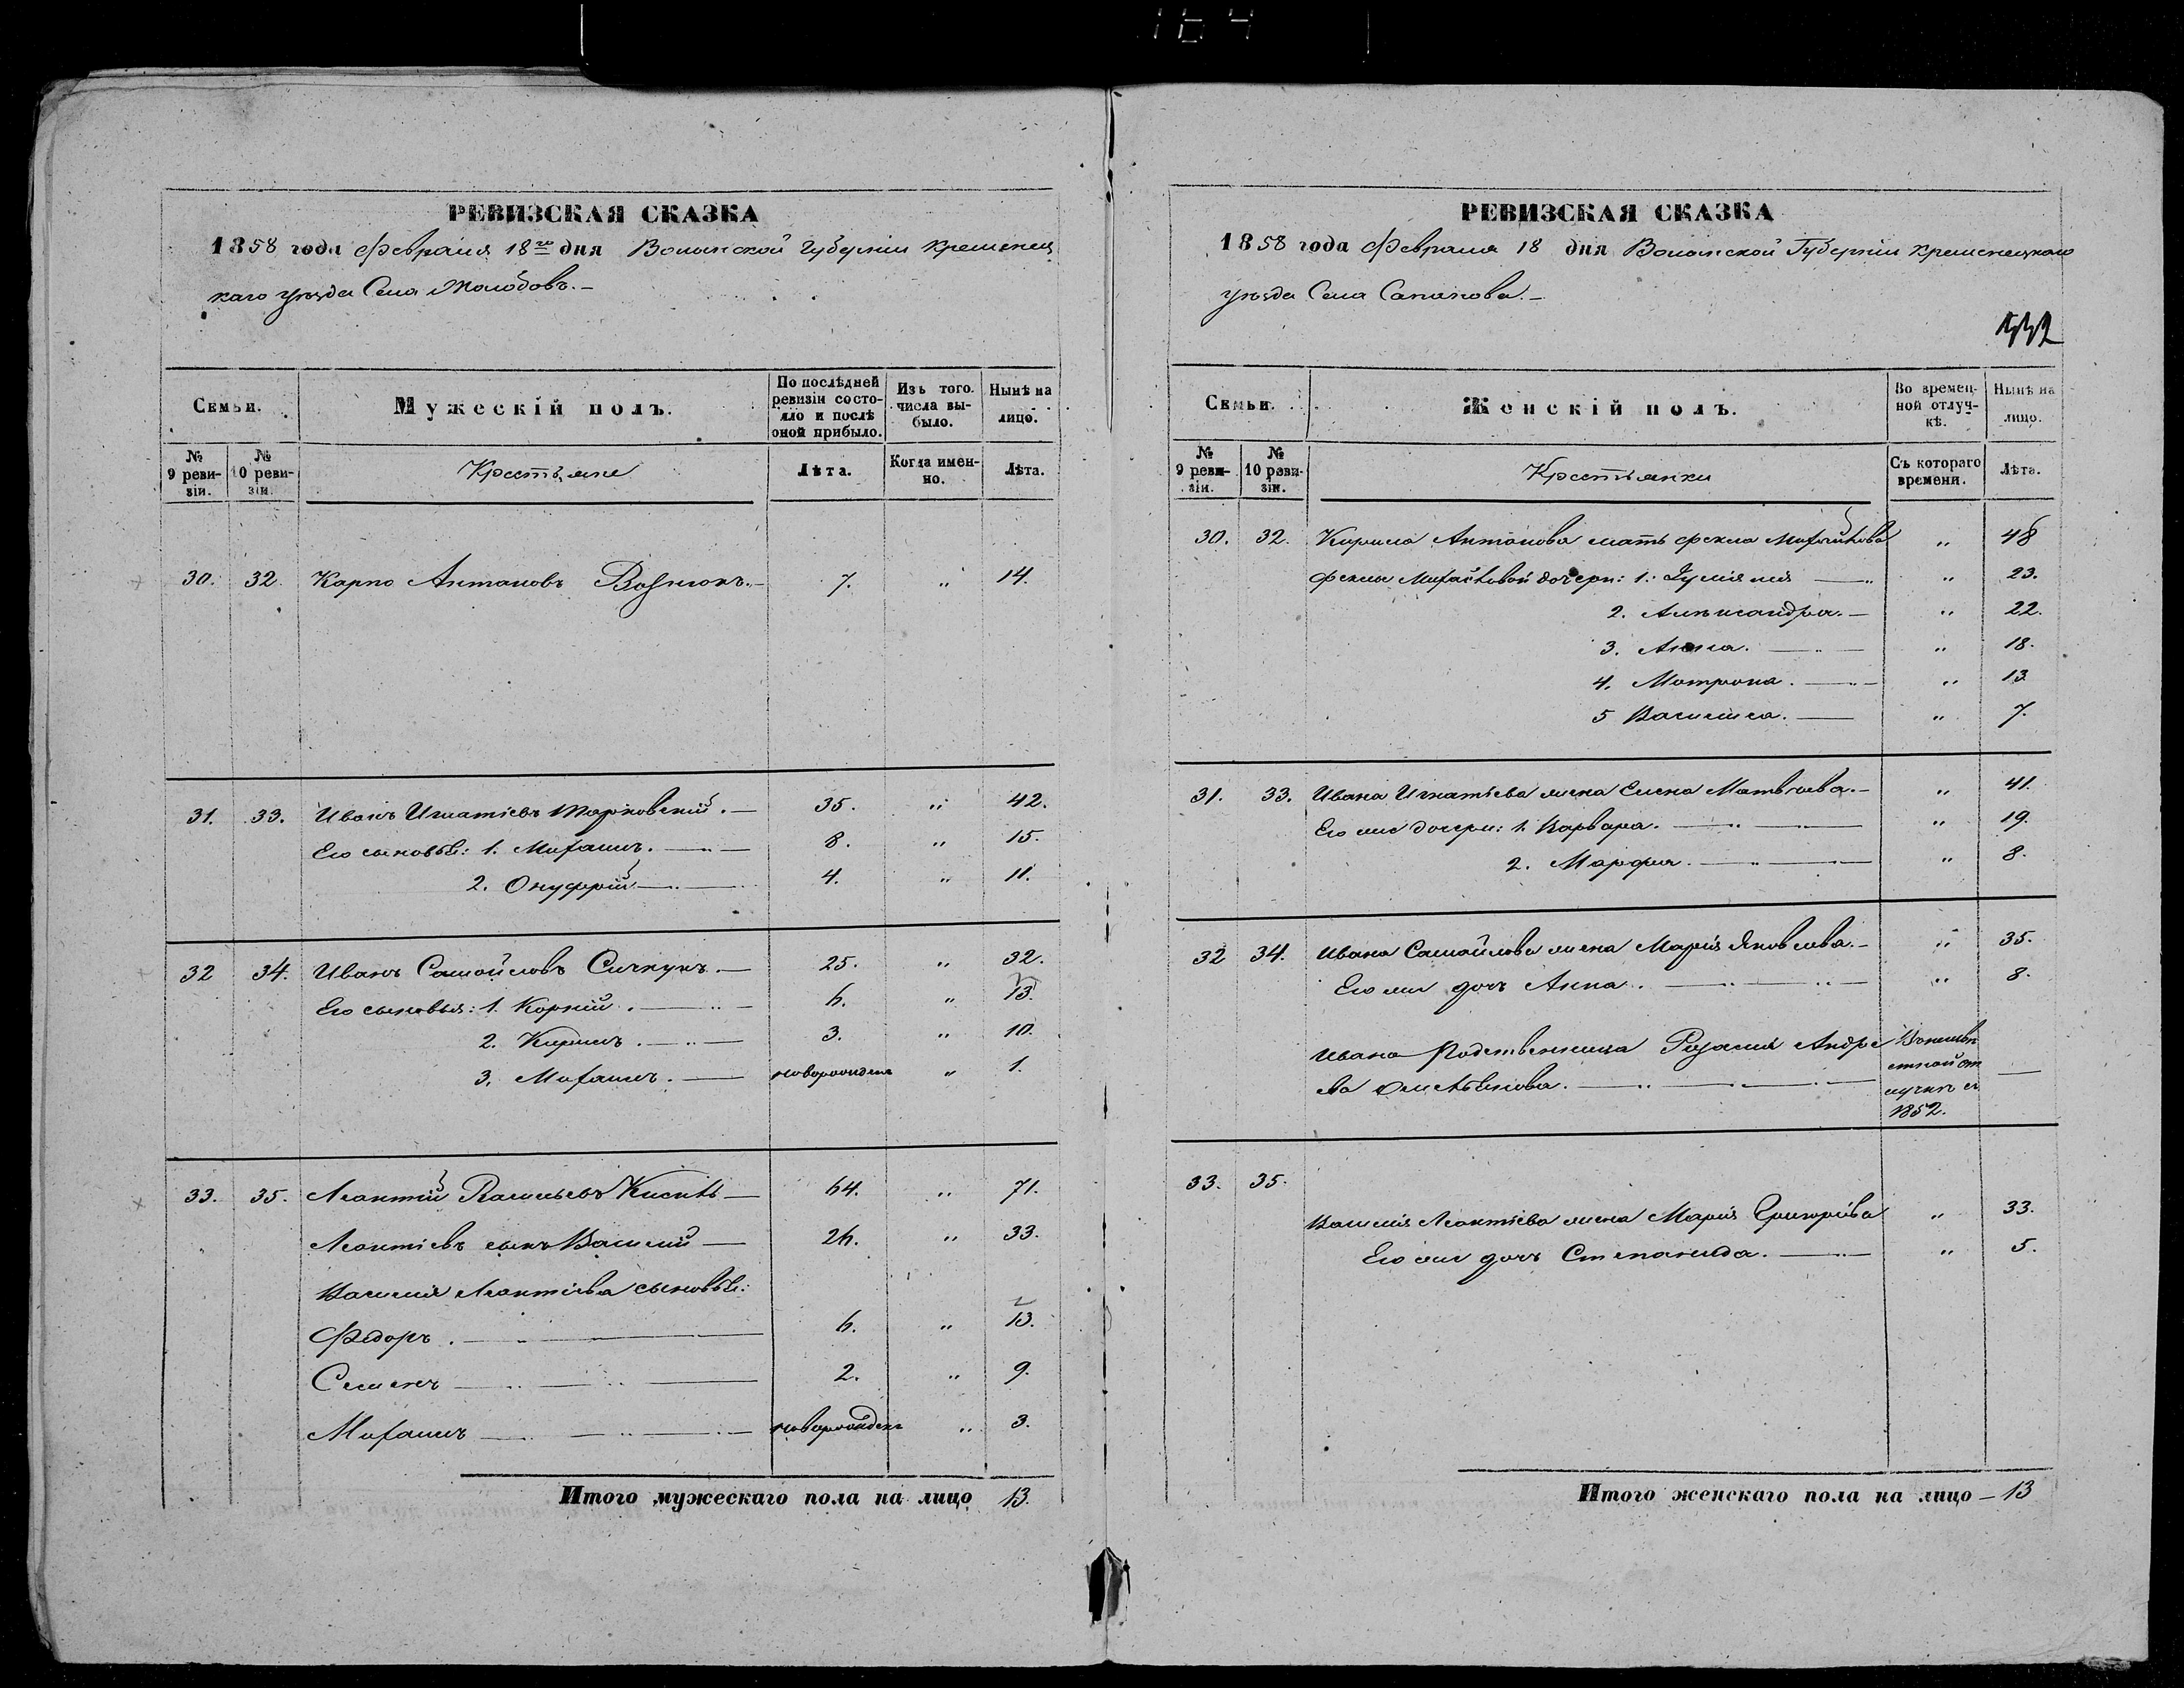 164
РЕВИЗСКАЯ СКАЗКА
1858 года Февраля 18го дня Волынской Губерніи Кременец
каго уѣзда Села Жолобовъ.
Семьи.
Мужескій полъ.
По послѣдней ревизіи состояло и послѣ оной прибыло.
Изъ того числа выбыло.
Нынѣ на лицо.
№ 9 ревизіи.
№ 10 ревизіи.
Крестьяне
Лѣта.
Когда именно.
Лѣта.
30. 32. Карпо Антановъ 7. " 14.
31. 33. Иванъ Игнатіевъ Жарковскій. 35. " 42.
Его сыновья: 1. Михаилъ. 8. " 15.
2. Онуфрій 4. " 11.
32 34. Иванъ Самойловъ 25. " 32.
Его сыновья: 1. Корній. 6. " 13.
2. Кирилъ. 3. " 10.
3. Михаилъ. новорожден " 1.
33. 35. Леонтій Васильевъ Кисиль 64. " 71.
Леонтіевъ сынъ Василій 26. " 33.
Василія Леонтіева сыновья:
Федоръ. 6. " 13.
Семенъ 2. " 9.
Михаилъ новорожден " 3.
Итого мужескаго пола на лицо 13.
РЕВИЗСКАЯ СКАЗКА
1858 года Февраля 18 дня Волынской Губерніи Кременецкаго
уѣзда Села Сапанова.
Семьи.
Женскій полъ.
Во временной отлучкѣ.
Нынѣ на лицо.
№ 9 ревизіи.
№ 10 ревизіи.
Крестьянки
Съ котораго времени.
Лѣта.
30. 32. Кирила Антонова мать Фекла Михайлова " 48
Феклы Михайловой дочери: 1. " 23.
2. Александра. " 22.
3. Анна. " 18.
4. Матрона. " 13
5 Василиса. " 7.
31. 33. Ивана Игнатьева жена Елена Матвѣева. " 41.
Его же дочери: 1. Варвара. " 19.
2. Марфа. " 8.
32 34. Ивана Самойлова жена Марія Яковлева. " 35.
Его же дочь Анна. " 8.
Ивана Родственница Розалія Андре
ева
отлучкѣ съ
1852.
33. 35.
Василія Леонтіева жена Марія Григоріева " 33.
Его же дочь Степанида. " 5.
Итого женскаго пола на лицо – 13